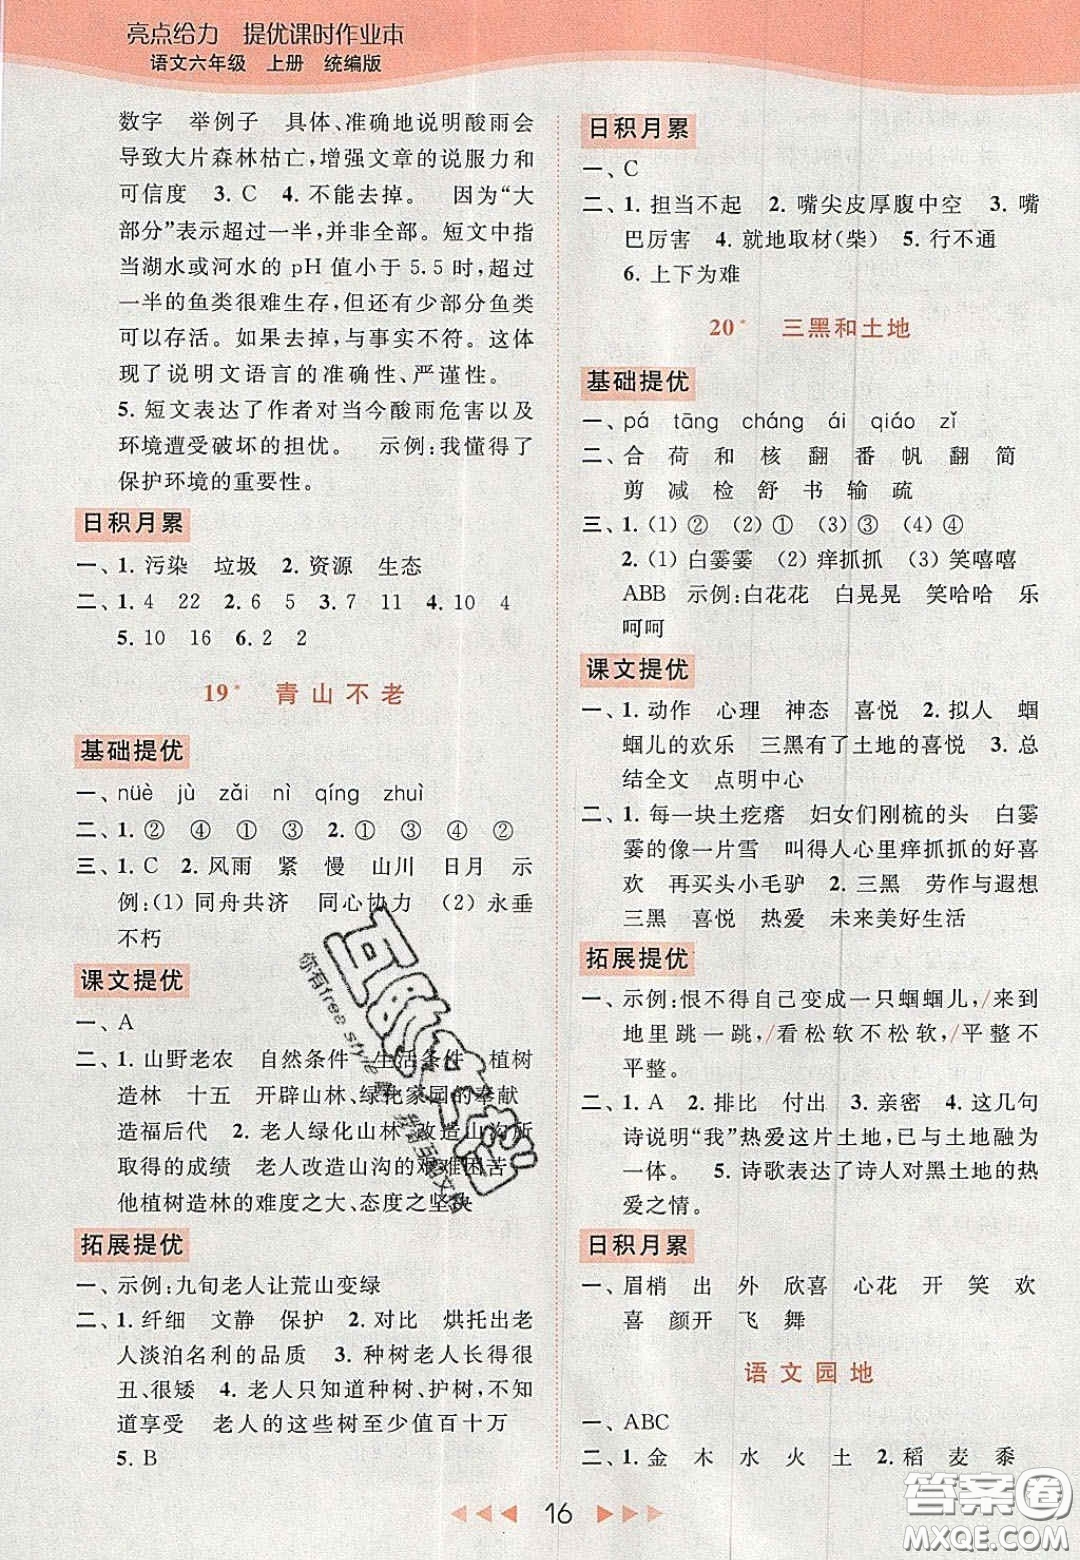 亮点给力 提优课时作业本
语文六年级 上册 统编版
数字 举例子 具体、准确地说明酸雨会
导致大片森林枯亡，增强文章的说服力和
可信度 3. C 4. 不能去掉。 因为“大
部分”表示超过一半，并非全部。短文中指
当湖水或河水的 pH 值小于 5. 5 时，超过
一半的鱼类很难生存，但还有少部分鱼类
可以存活。如果去掉，与事实不符。这里
体现了说明文语言的准确性、严谨性。
5. 短文表达了作者对当今酸雨危害以及
环境遭受破坏的担忧。 示例：我懂得了
保护环境的重要性。
日积月累
一、1. 污染 垃圾 2. 资源 生态
二、1. 4 22 2. 6 5 3. 7 11 4. 10 4
5. 10 16 6. 2 2
19* 青山不老
基础提优
一、nüè jù zǎi nì qíng zhuì
二、1. ② ④ ① ③ 2. ① ③ ④ ②
三、1. C 2. 风雨 紧 慢 山川 日月 示
例：(1) 同舟共济 同心协力 (2) 永垂
不朽
课文提优
一、A
二、1. 山野老农 自然条件 生活条件 植树
造林 十五 开辟山林、绿化家园的奉献
造福后代 2. 老人绿化山林、改造山沟所
取得的成绩 老人改造山沟的艰难困苦
他植树造林的难度之大、态度之坚决
拓展提优
一、示例：九旬老人让荒山变绿
二、1. 纤细 文静 保护 2. 对比 烘托出老
人淡泊名利的品质 3. 种树老人长得很
丑、很矮 4. 老人只知道种树、护树，不知
道享受 老人的这些树至少值百十万
5. B
日积月累
一、C
二、1. 担当不起 2. 嘴尖皮厚腹中空 3. 嘴
巴厉害 4. 就地取材(柴) 5. 行不通
6. 上下为难
20* 三黑和土地
基础提优
一、pá tāng cháng ái qiáo zǐ
二、合 荷 和 核 翻 番 帆 翻 简
剪 减 检 舒 书 输 疏
三、1. (1) ② (2) ① (3) ③ (4) ④
2. (1) 白霎霎 (2) 痒抓抓 (3) 笑嘻嘻
ABB 示例：白花花 白晃晃 笑哈哈 乐
呵呵
课文提优
一、1. 动作 心理 神态 喜悦 2. 拟人 蝈
蝈儿的欢乐 三黑有了土地的喜悦 3. 总
结全文 点明中心
二、1. 每一块土疙瘩 妇女们刚梳的头 白霎
霎的像一片雪 叫得人心里痒抓抓的好喜
欢 再买头小毛驴 2. 三黑 劳作与遐想
三黑 喜悦 热爱 未来美好生活
拓展提优
一、示例：恨不得自己变成一只蝈蝈儿，/来到
地里跳一跳，/看松软不松软，/平整不
平整。
二、1. A 2. 排比 付出 3. 亲密 4. 这几句
诗说明“我”热爱这片土地，已与土地融为
一体。 5. 诗歌表达了诗人对黑土地的热
爱之情。
日积月累
一、眉梢 出 外 欣喜 心花 开 笑 欢
喜 颜开 飞 舞
语文园地
一、ABC
二、1. 金 木 水 火 土 2. 稻 麦 黍
16
答案圈
MXQE.COM